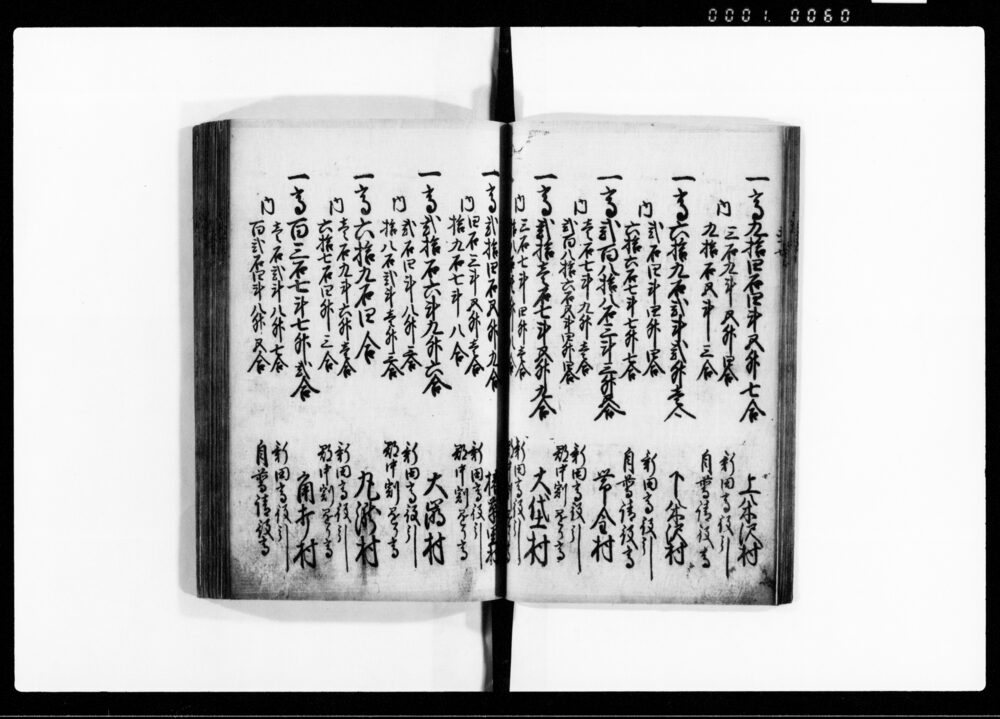 0001. 0060
一高九拾四石四斗五升七合 上米沢村
内 三石九斗五升四合 新田高役引
九拾石五斗三合 自普請役高
一高六拾九石弐斗弐升壱合 下米沢村
内 弐石四斗四升四合 新田高役引
六拾六石七斗七升七合 自普請役高
一高弐百八拾八石三斗三升 合 帯合村
内 壱石七斗九升壱合 新田高役引
弐百八拾六石五斗四升 合 郡中割 高
一高弐拾壱石七斗五升九合 大袋村
内 三石七斗四升壱合 新田高役引
拾八石 合
一高弐拾四石五升九合 村
内 四石三斗五升壱合 新田高役引
拾九石七斗八合 郡中割 高
一高弐拾石六斗九升六合 大 村
内 弐石四斗八升 合 新田高役引
拾八石弐斗壱升 合 郡中割 高
一高六拾九石四合 丸渕村
内 壱石九斗六升壱合 新田高役引
六拾七石四升三合 郡中割 高
一高百三石七斗七升弐合 角折村
内 壱石弐斗八升七合 新田高役引
百弐石四斗八升五合 自普請役高